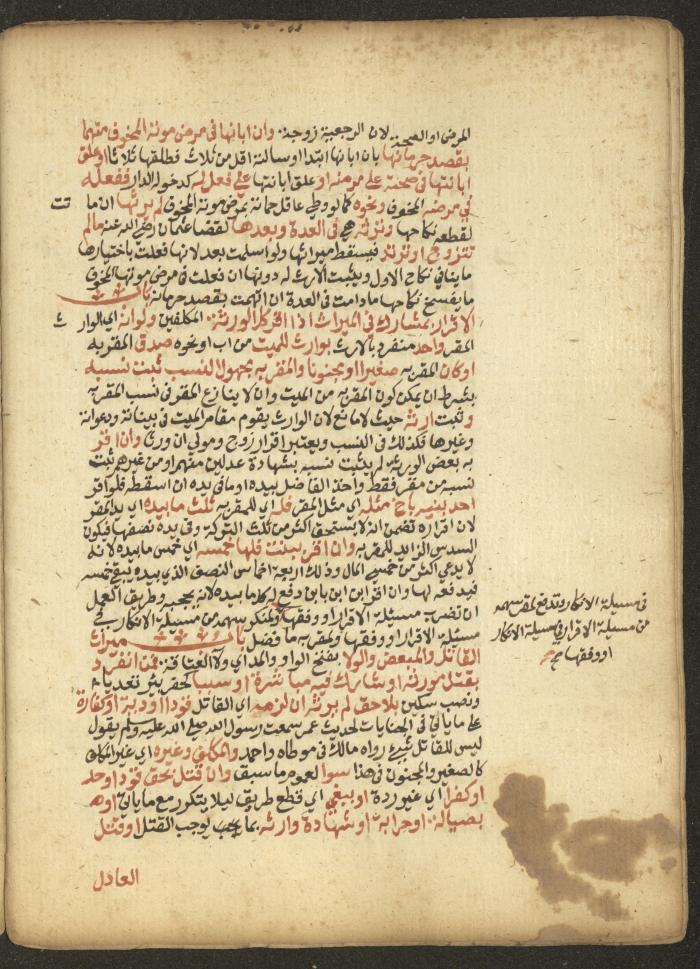 المرض او الصحة لان الرجعية زوجة وان ابانها في مرض موته المخوف متهما
بقصد حرمانها بان ابانها ابتدا او سالته اقل من ثلاث فطلقها ثلاثا او علق
ابانتها في صحته على مرضه او علق ابانتها على فعل له كدخول الدار ففعله
في مرضه المخوف ونحوه كما لو وطي عاقل حماته بمرض موته المخوف لم يرثها ان ما تت
لقطعه نكاحها وترثه هي في العدة وبعدها لقضا عثمان رضي الله عنه ما لم
تتزوج او ترتد فيسقط ميراثها ولو اسلمت بعد لانها فعلت باختيارها
ما ينافي نكاح الاول ويثبت الارث له دونها ان فعلت في مرض موتها المخوف
ما يفسخ نكاحها ما دامت في العدة ان اتهمت بقصد حرمانه باب
الاقرار بمشارك في الميراث اذا اقر كل الورثة المكلفين ولو انه اي الوار ث
المقر واحد منفرد بالارث بوارث للميت من اب او نحوه صدق المقر به
او كان المقر به صغيرا او مجنونا والمقر به مجهول النسب ثبت نسبه
بشرط ان يمكن كون المقر به من الميت وان لا ينازع المقر في نسب المقر به
وثبت ارثه حيث لا مانع لان الوارث يقوم مقام الميت في بيناته ودعوانه
وغيرها فكذلك في النسب ويعتبر اقرار زوج ومولى ان ورثا وان اقر
به بعض الورثة لم يثبت نسبه بشهادة عدلين منهم او من غيرهم ثبت
نسبه من مقر فقط واخذ الفاضل بيده او ما في يده ان اسقطه فلو اقر
احد ابنيه باخ مثله اي مثل المقر فله اي للمقر به ثلث ما بيده اي يد المقر
لان اقراره تضمن انه لا يستحق اكثر من ثلث التركة وفي يده نصفها فيكون
السدس الزايد للمقر به وان اقر ببنت فلها خمسه اي خمس ما بيده لانه
لا يدعي اكثر من خمسي المال وذلك اربعة اخماس النصف الذي بيده يبقى خمسه
فيدفعه لها وان اقر ابن ابن بابن دفع له كل ما بيده لانه يحجبه وطريق العمل
ان تضرب مسيلة الاقرار او وفقها ولمنكر سهمه من مسيلة الانكار في
مسيلة الاقرار او وفقها ولمقر به ما فضل باب ميراث
القاتل والمبعض والولا بفتح الواو والمد اي ولا العتاقة فمن انفرد
بقتل مورثه او شارك فيه مباشرة او سببا كحفر بئر تعديا
ونصب سكين بلا حق لم يرثه ان لزمه اي القاتل قود او دية او كفارة
على ما ياتي في الجنايات لحديث عمر سمعت رسول الله صلى الله عليه وسلم يقول
ليس للقاتل شيء رواه مالك في موطاه واحمد والمكلف وغيره اي غير المكلف
كالصغير والمجنون في هذا سوا لعموم ما سبق وان قتل بحق قود او حد
او كفرا اي غير ردة او ببغي اي قطع طريق ليلا يتكرر مع ما ياتي او
بصيالة او حرابة او شهادة وارثه بما يوجب القتل او قتل
العادل
في مسيلة الانكار وتدفع لمقر سهمه
من مسيلة الاقرار في مسيلة الانكار
او وفقها صح